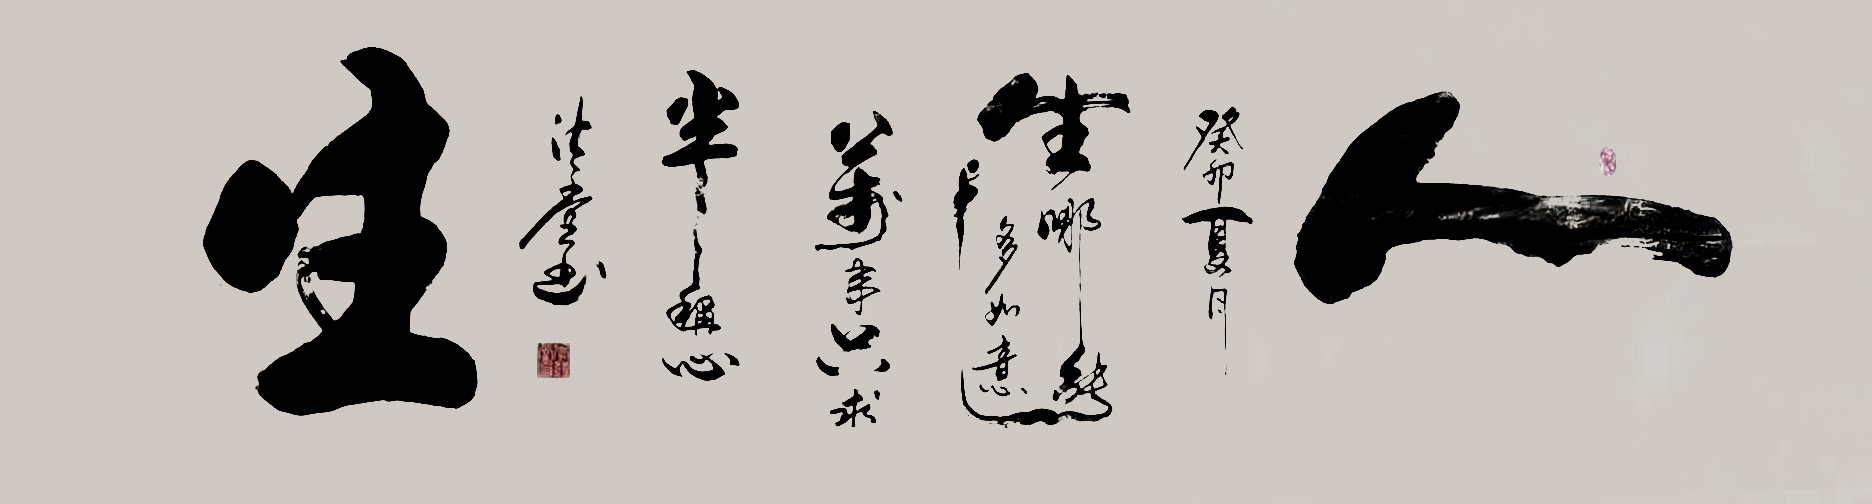 人
癸卯夏月
生哪能
多如意
萬事只求
半稱心
堂书
生